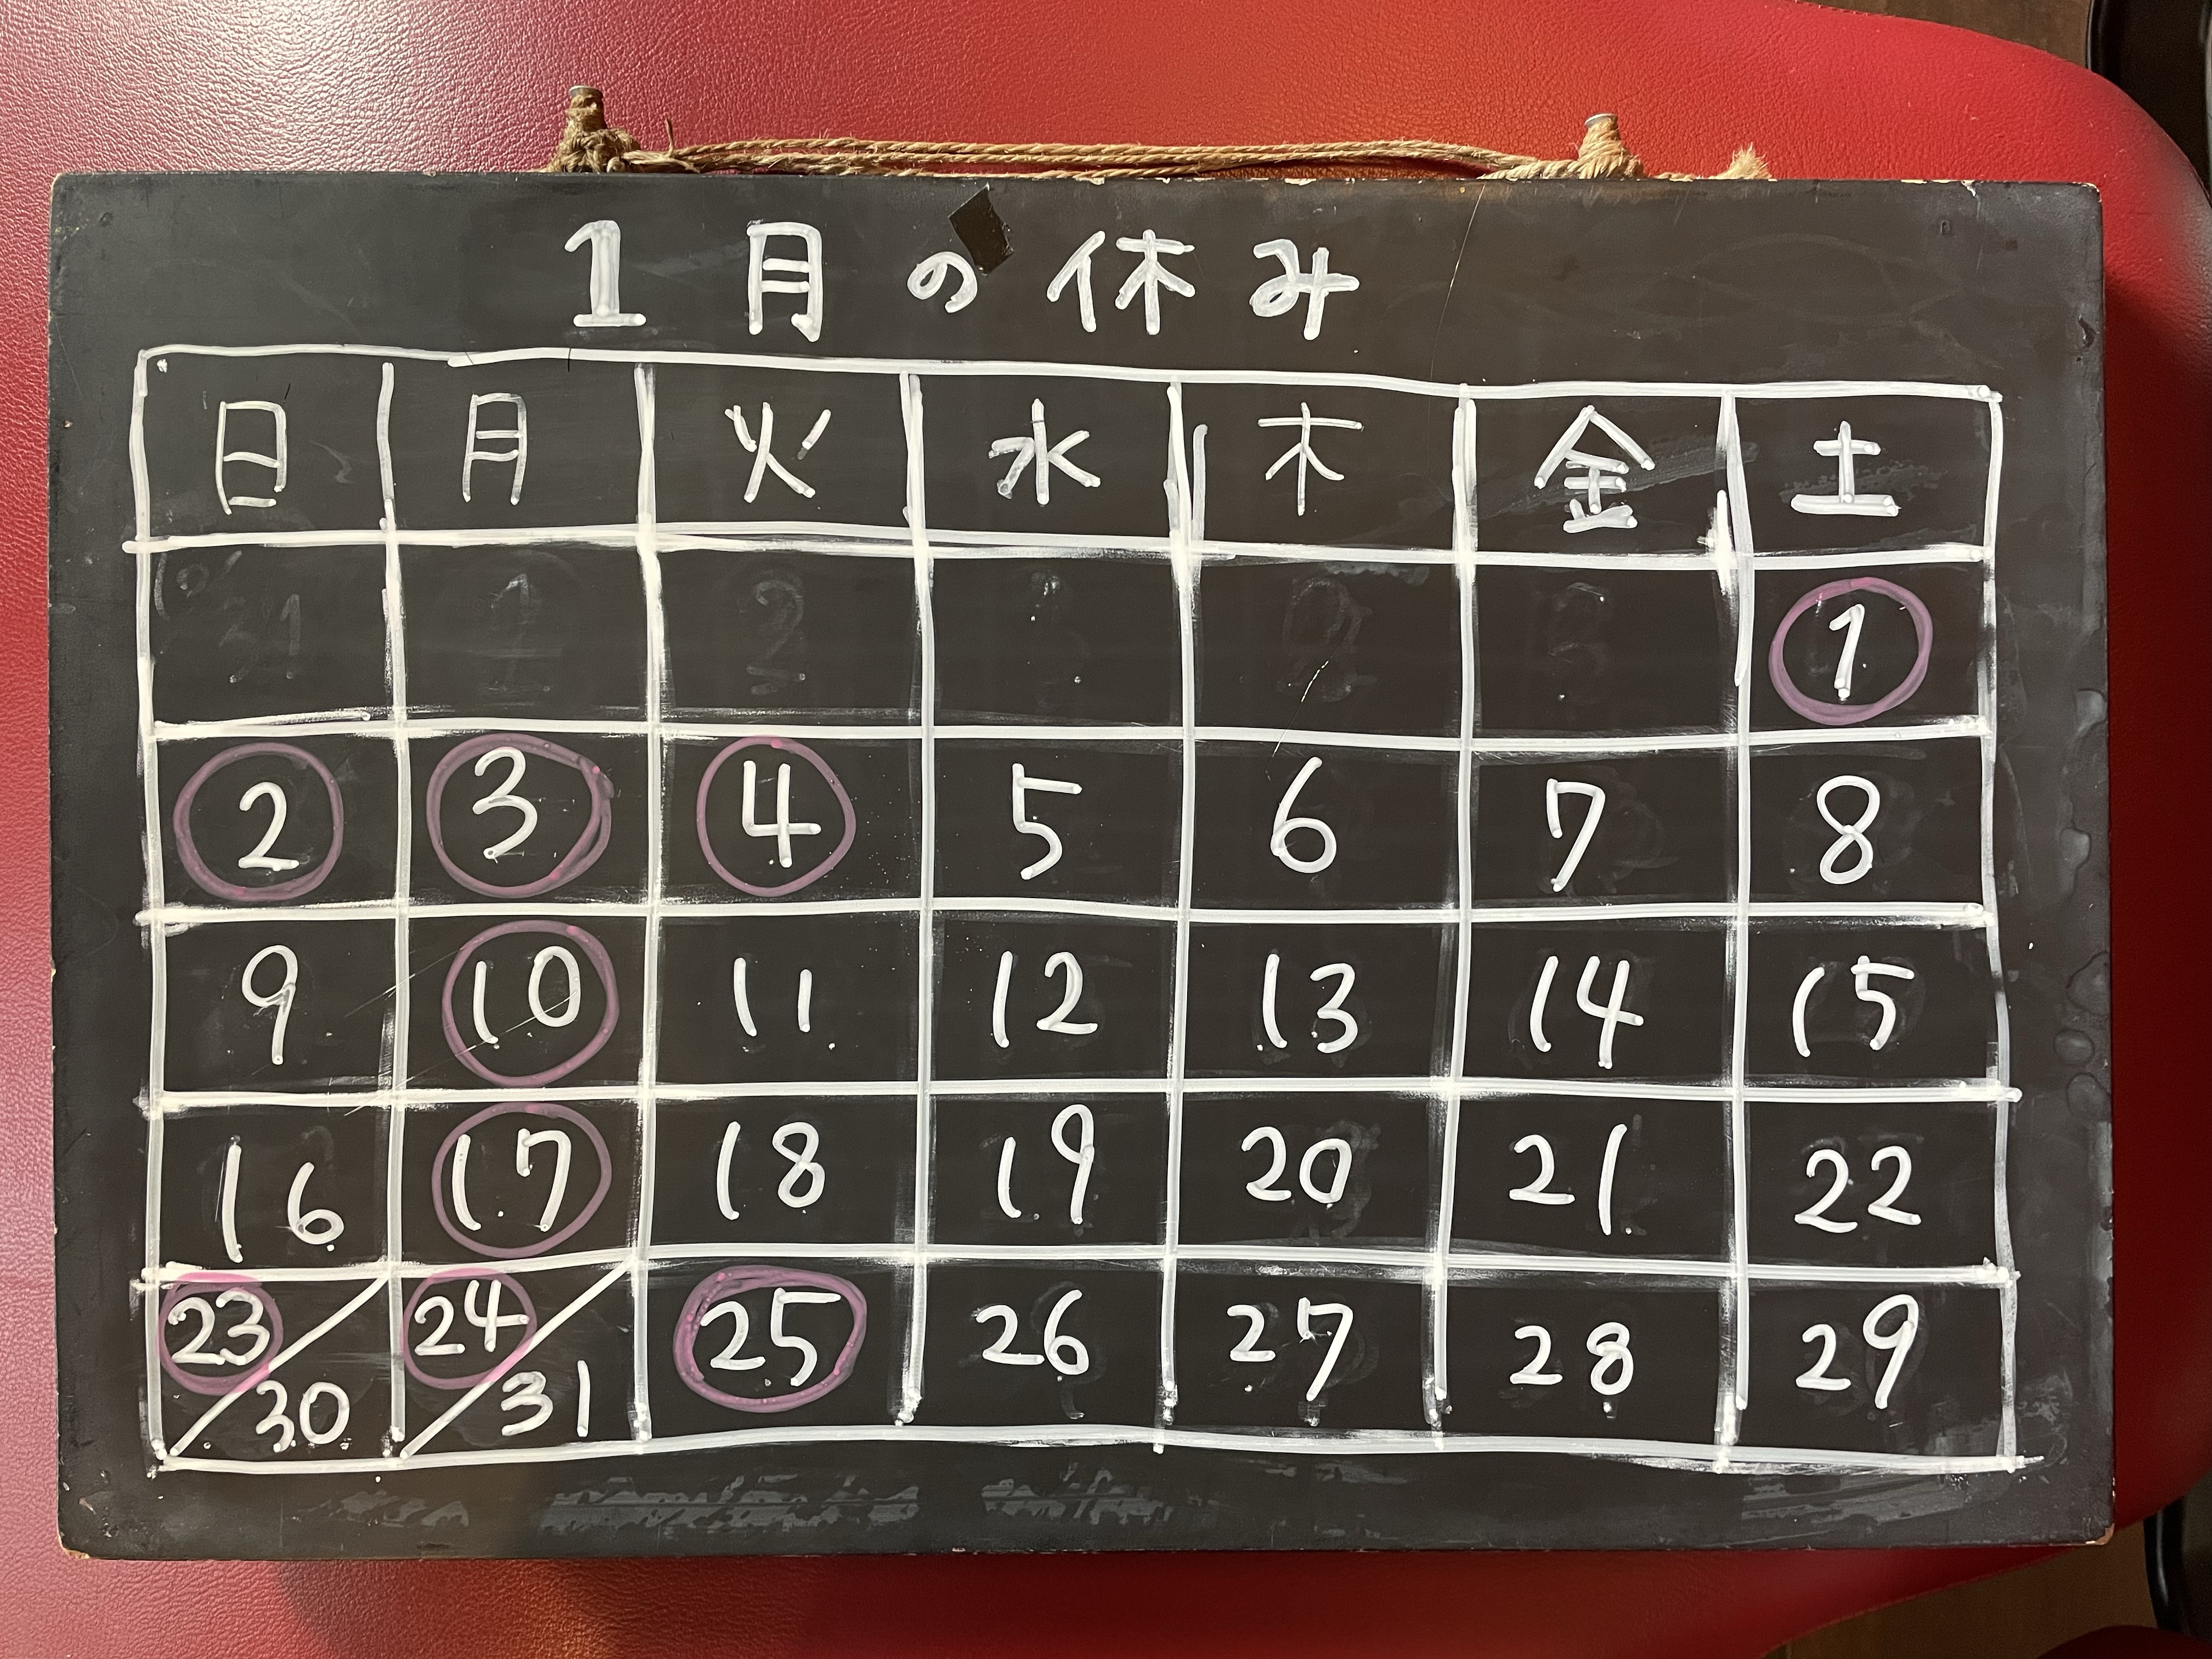 1月の休み
日 月 火 水 木 金 土
1
2 3 4 5 6 7 8
9 10 11 12 13 14 15
16 17 18 19 20 21 22
23/30 24/31 25 26 27 28 29